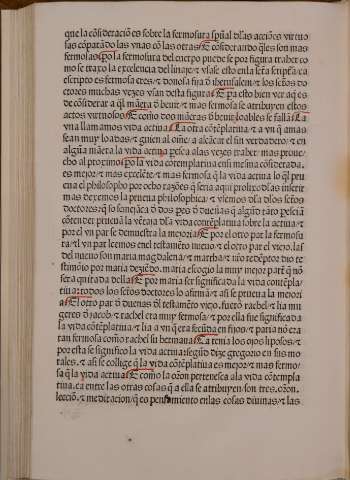 que la cõsideraciõ es sobre la fermosura spũal dlas acciões virtuo
sas cõparãdo las vnas cõ las otras E cõsiderando q̃les son mas
fermosas por la fermosura del cuerpo puede se por figura traher co
mo se traxo la excelencia del linaje. ⁊ vsase esto en la scriptura. ca
escripto es fermosa eres ⁊ donosa fija d iherusalem: ⁊ los sctõs do
ctores muchas vezes vsan desta figura E pa esto bien ver aq̃ es
de cõsiderar a q̃l mãera d beuir ⁊ mas fermosa se atribuyen estos
actos virtuosos E como dos mãeras d beuir loables se fallã La
vna llamamos vida actiua La otra cõtẽplatiua ⁊ a vn q̃ amas
sean muy loadas ⁊ guien al õme a alcãçar el fin verdadero ⁊ en
algũa mãera la vida actiua pesca alas vezes traher mas proue
cho al proximo por la vida contemplatiua en si mesma cõsiderada.
es mejor ⁊ mas excelẽte ⁊ mas fermosa q̃ la vida actiua lo q̃l prue
ua el philosopho por ocho razões q̃ seria aqui prolixo dlas inserir
mas dexemos la prueua philosophica ⁊ vsemos dla dlos sctõs
doctores: q̃ so semejãça d dos pes d dueñas q̃ algũd rãto pescia
cõtender prueuã la vẽtaja dla vida cõtẽplatiua sobre la actiua ⁊
por el vn par se demuestra la mejoria E por el otro par la fermosu
ra el vn par leemos en el testamẽto nueuo. ⁊ el otro par el viejo. las
del nueuo son maria magdalena ⁊ martha ⁊ nro redẽptor dio te
stimõio por maria deziẽdo. maria escogio la muy mejor parte q̃ nõ
sera quitada della E por maria ser significada la vida contẽpla
tiua: todos los sctõs doctores lo afirmã ⁊ asi se prueua la mejori
a E el otro par d dueñas dl testamẽto viejo. fuerõ rachel ⁊ lia mu
geres d jacob ⁊ rachel era muy fermosa ⁊ por ella fue significada
la vida cõtẽplatiua ⁊ lia a vn q̃ era fecũda en fijos ⁊ paria nõ era
tan fermosa como rachel su hermana La tenia los ojos liposos ⁊
por esta se significo la vida actiua: segũd dize gregorio en sus mo
rales. ⁊ asi se collige q̃ la vida cõtẽplatiua es mejor ⁊ mas fermo
sa q̃ la vida actiua E como la oraciõ pertenesca ala vida cõtempla
tiua. ca entre las otras cosas q̃ a ella se atribuyen son tres. oraciõ.
lecciõ. ⁊ meditacion/ q̃ es pensamiento en las cosas diuinas/ ⁊ las